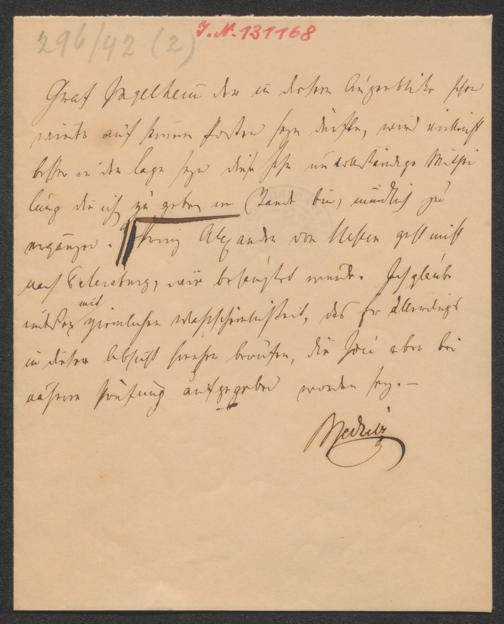 296/42 (2)
J.N. 131168
Graf Ingelheim der in diesem Augenblike schon
wieder auf seinem Posten seyn dürfte, wird vielleicht
besser in der Lage seyn diese sehr unvollständige Mitthei
lung die ich zu geben im Stande bin, mündlich zu
ergänzen. Prinz Alexander von Hessen geht nicht
nach Petersburg, wie behauptet wurde. Ich glaube
mit ziemlicher Wahrscheinlichkeit, das Er allerdings
in dieser Absicht berufen, die Idee aber bei
näherer Prüfung aufgegeben worden sey. —